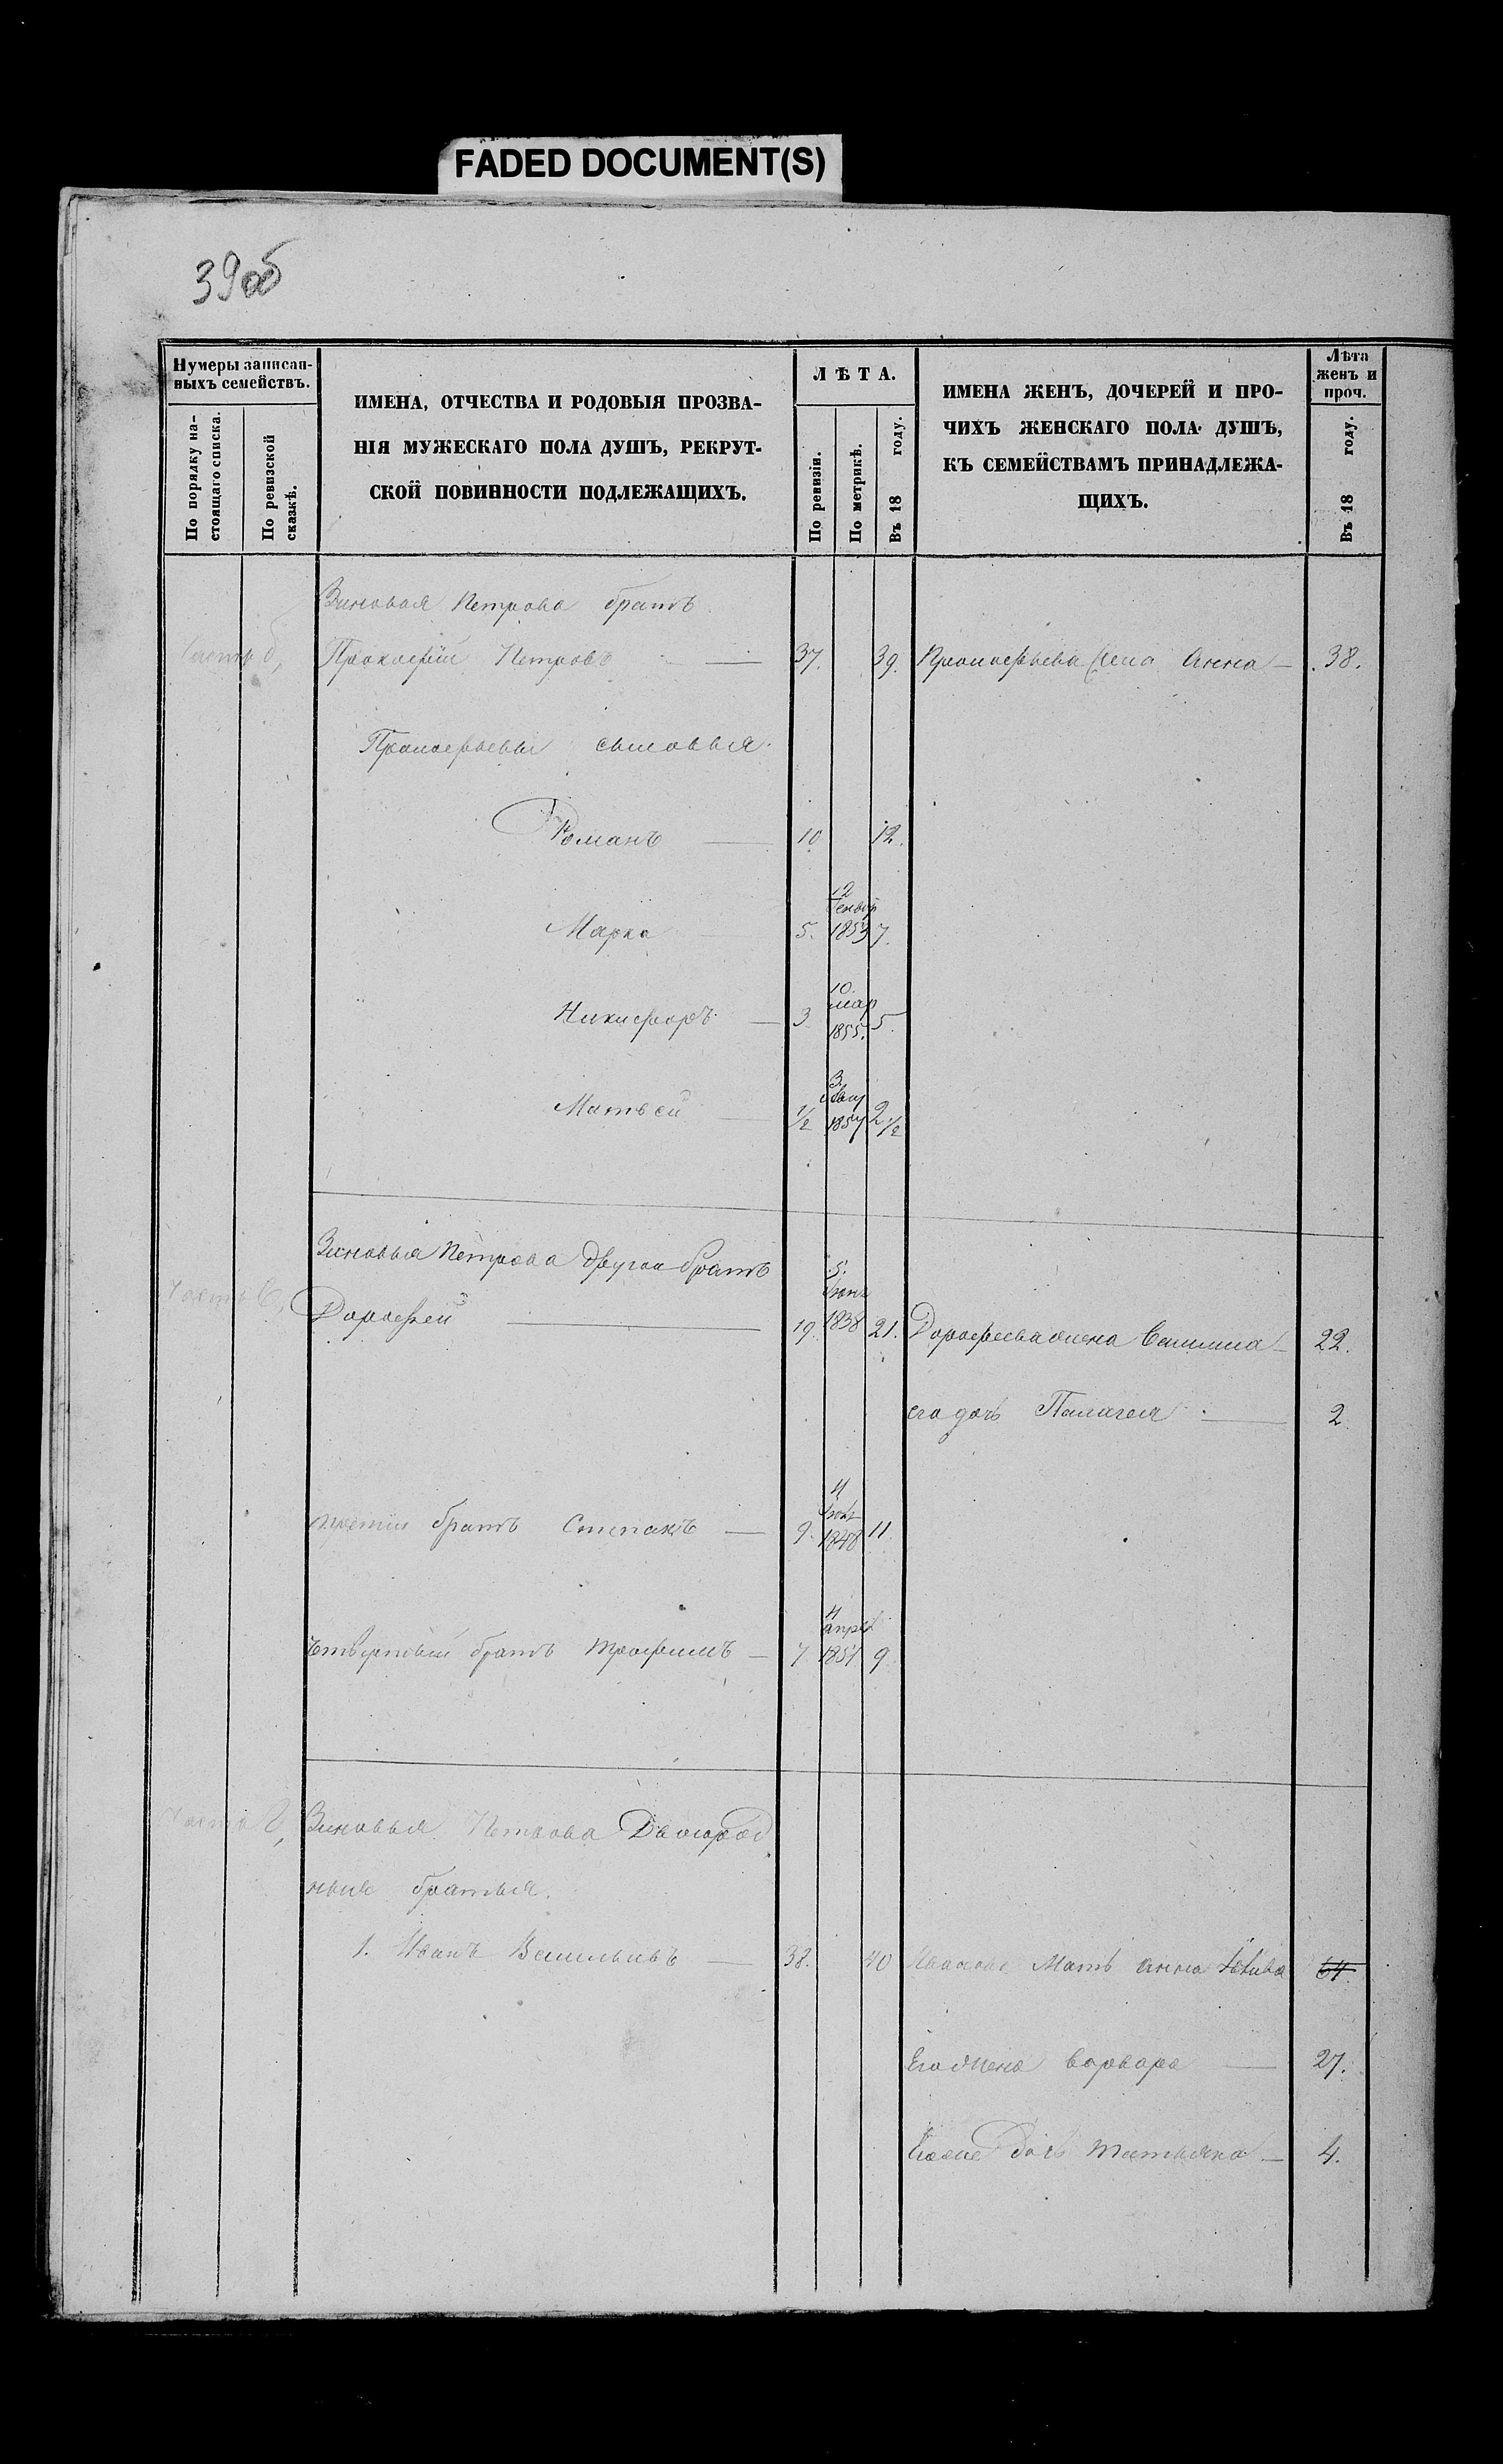 FADED DOCUMENT(S)
39об
Нумеры записан-
ныхъ семействъ.
По порядку на-
стоящаго списка.
По ревизской
сказкѣ.
ИМЕНА, ОТЧЕСТВА И РОДОВЫЯ ПРОЗВА-
НІЯ МУЖЕСКАГО ПОЛА ДУШЪ, РЕКРУТ-
СКОЙ ПОВИННОСТИ ПОДЛЕЖАЩИХЪ.
ЛѢТА.
По ревизіи.
По метрикѣ.
Въ 18 году.
ИМЕНА ЖЕНЪ, ДОЧЕРЕЙ И ПРО-
ЧИХЪ ЖЕНСКАГО ПОЛА ДУШЪ,
КЪ СЕМЕЙСТВАМЪ ПРИНАДЛЕЖА-
ЩИХЪ.
Лѣта
женъ и
проч.
Въ 18 году.
Зиновья Петрова братъ
Прокофій Петровъ — 37. 39. Прокофьева жена Анна — 38.
Прокофьевы сыновья.
Романъ — 10 12.
12
Генвар
Марко 5. 1853 7.
10
мар
Никифоръ — 3 1855. 5.
3
Матвей — 1/2 1857 2 1/2
Зиновья Петрова другой братъ
5.
Дорофей — 19. 1838 21. Дорофеева жена — 22.
его дочь Палагея — 2
4
третій братъ Степанъ — 9. 1848 11
4
апрел
братъ Трофимъ — 7 1851 9
Часть
Зиновья Петрова Двоюрод
ныя братья.
1. Иванъ Васильевъ — 38. 40 Иванова Мать Анна 64.
Его жена Варвара — 27.
Дочь Татьяна — 4.